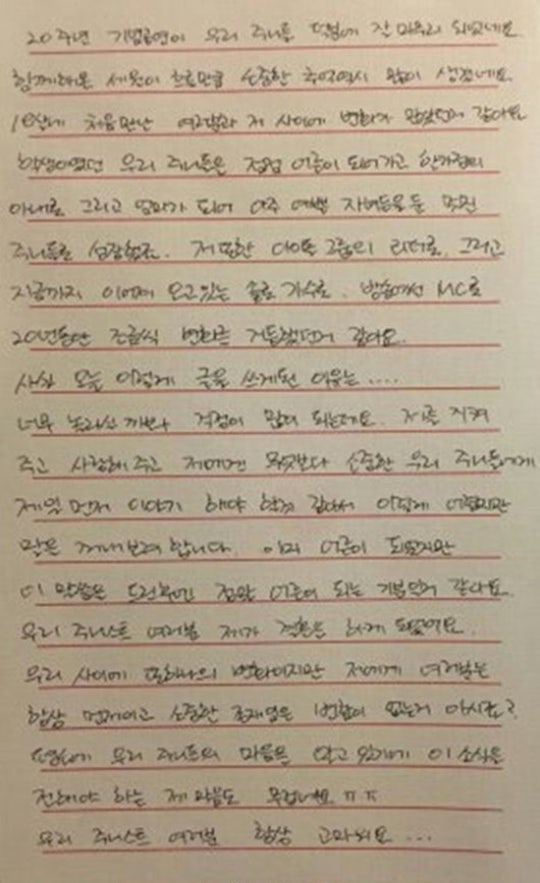 20주년 기념공연이 우리 주니들 덕분에 잘 마무리 되었네요
함께해온 세월이 흐른만큼 소중한 추억역시 많이 생겼네요.
18살에 처음만난 여러분과 저 사이에 변화가 많았던거 같아요
학생이였던 우리 주니들은 점점 어른이 되어가고 한가정의
아내로 그리고 엄마가 되어 아주 예쁜 자녀들을 둔 멋진
주니들로 성장했죠. 저 또한 아이돌 그룹의 리더로, 그리고
지금까지 이어져 오고있는 솔로 가수로, 방송에선 MC로
20년동안 조금씩 변화를 거듭했던거 같아요.
사실 오늘 이렇게 글을 쓰게된 이유는....
너무 놀라실까봐 걱정이 많이 되는데요. 저를 지켜
주고 사랑해주고 저에겐 무엇보다 소중한 우리 주니들에게
제일 먼저 이야기 해야 할것 같아서 이렇게 어렵지만
말을 꺼내보려 합니다. 이미 어른이 되었지만
이 말씀을 드린후엔 정말 어른이 되는 기분인거 같아요.
우리 주니스트 여러분 제가 결혼을 하게 되었어요.
우리 사이에 또하나의 변화이지만 저에게 여러분은
항상 먼저이고 소중한 존재임은 변함이 없는거 아시죠?
우리 주니들의 마음을 알고 있기에 이 소식을
전해야 하는 제 마음도 무겁네요 ㅠㅠ
우리 주니스트 여러분 항상 고마워요...